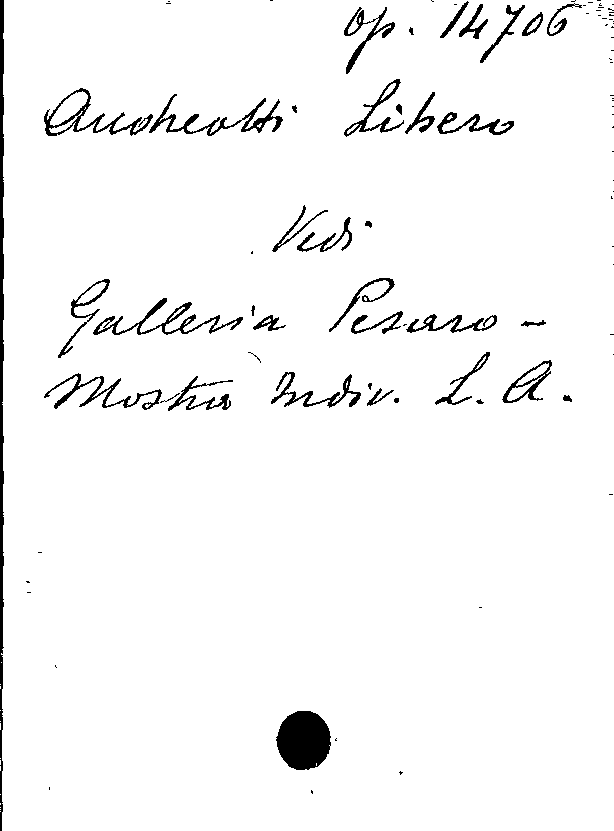 Op. 14706
Andreotti Libero
Vedi
Galleria Pesaro -
Mostra Indiv. L. A.